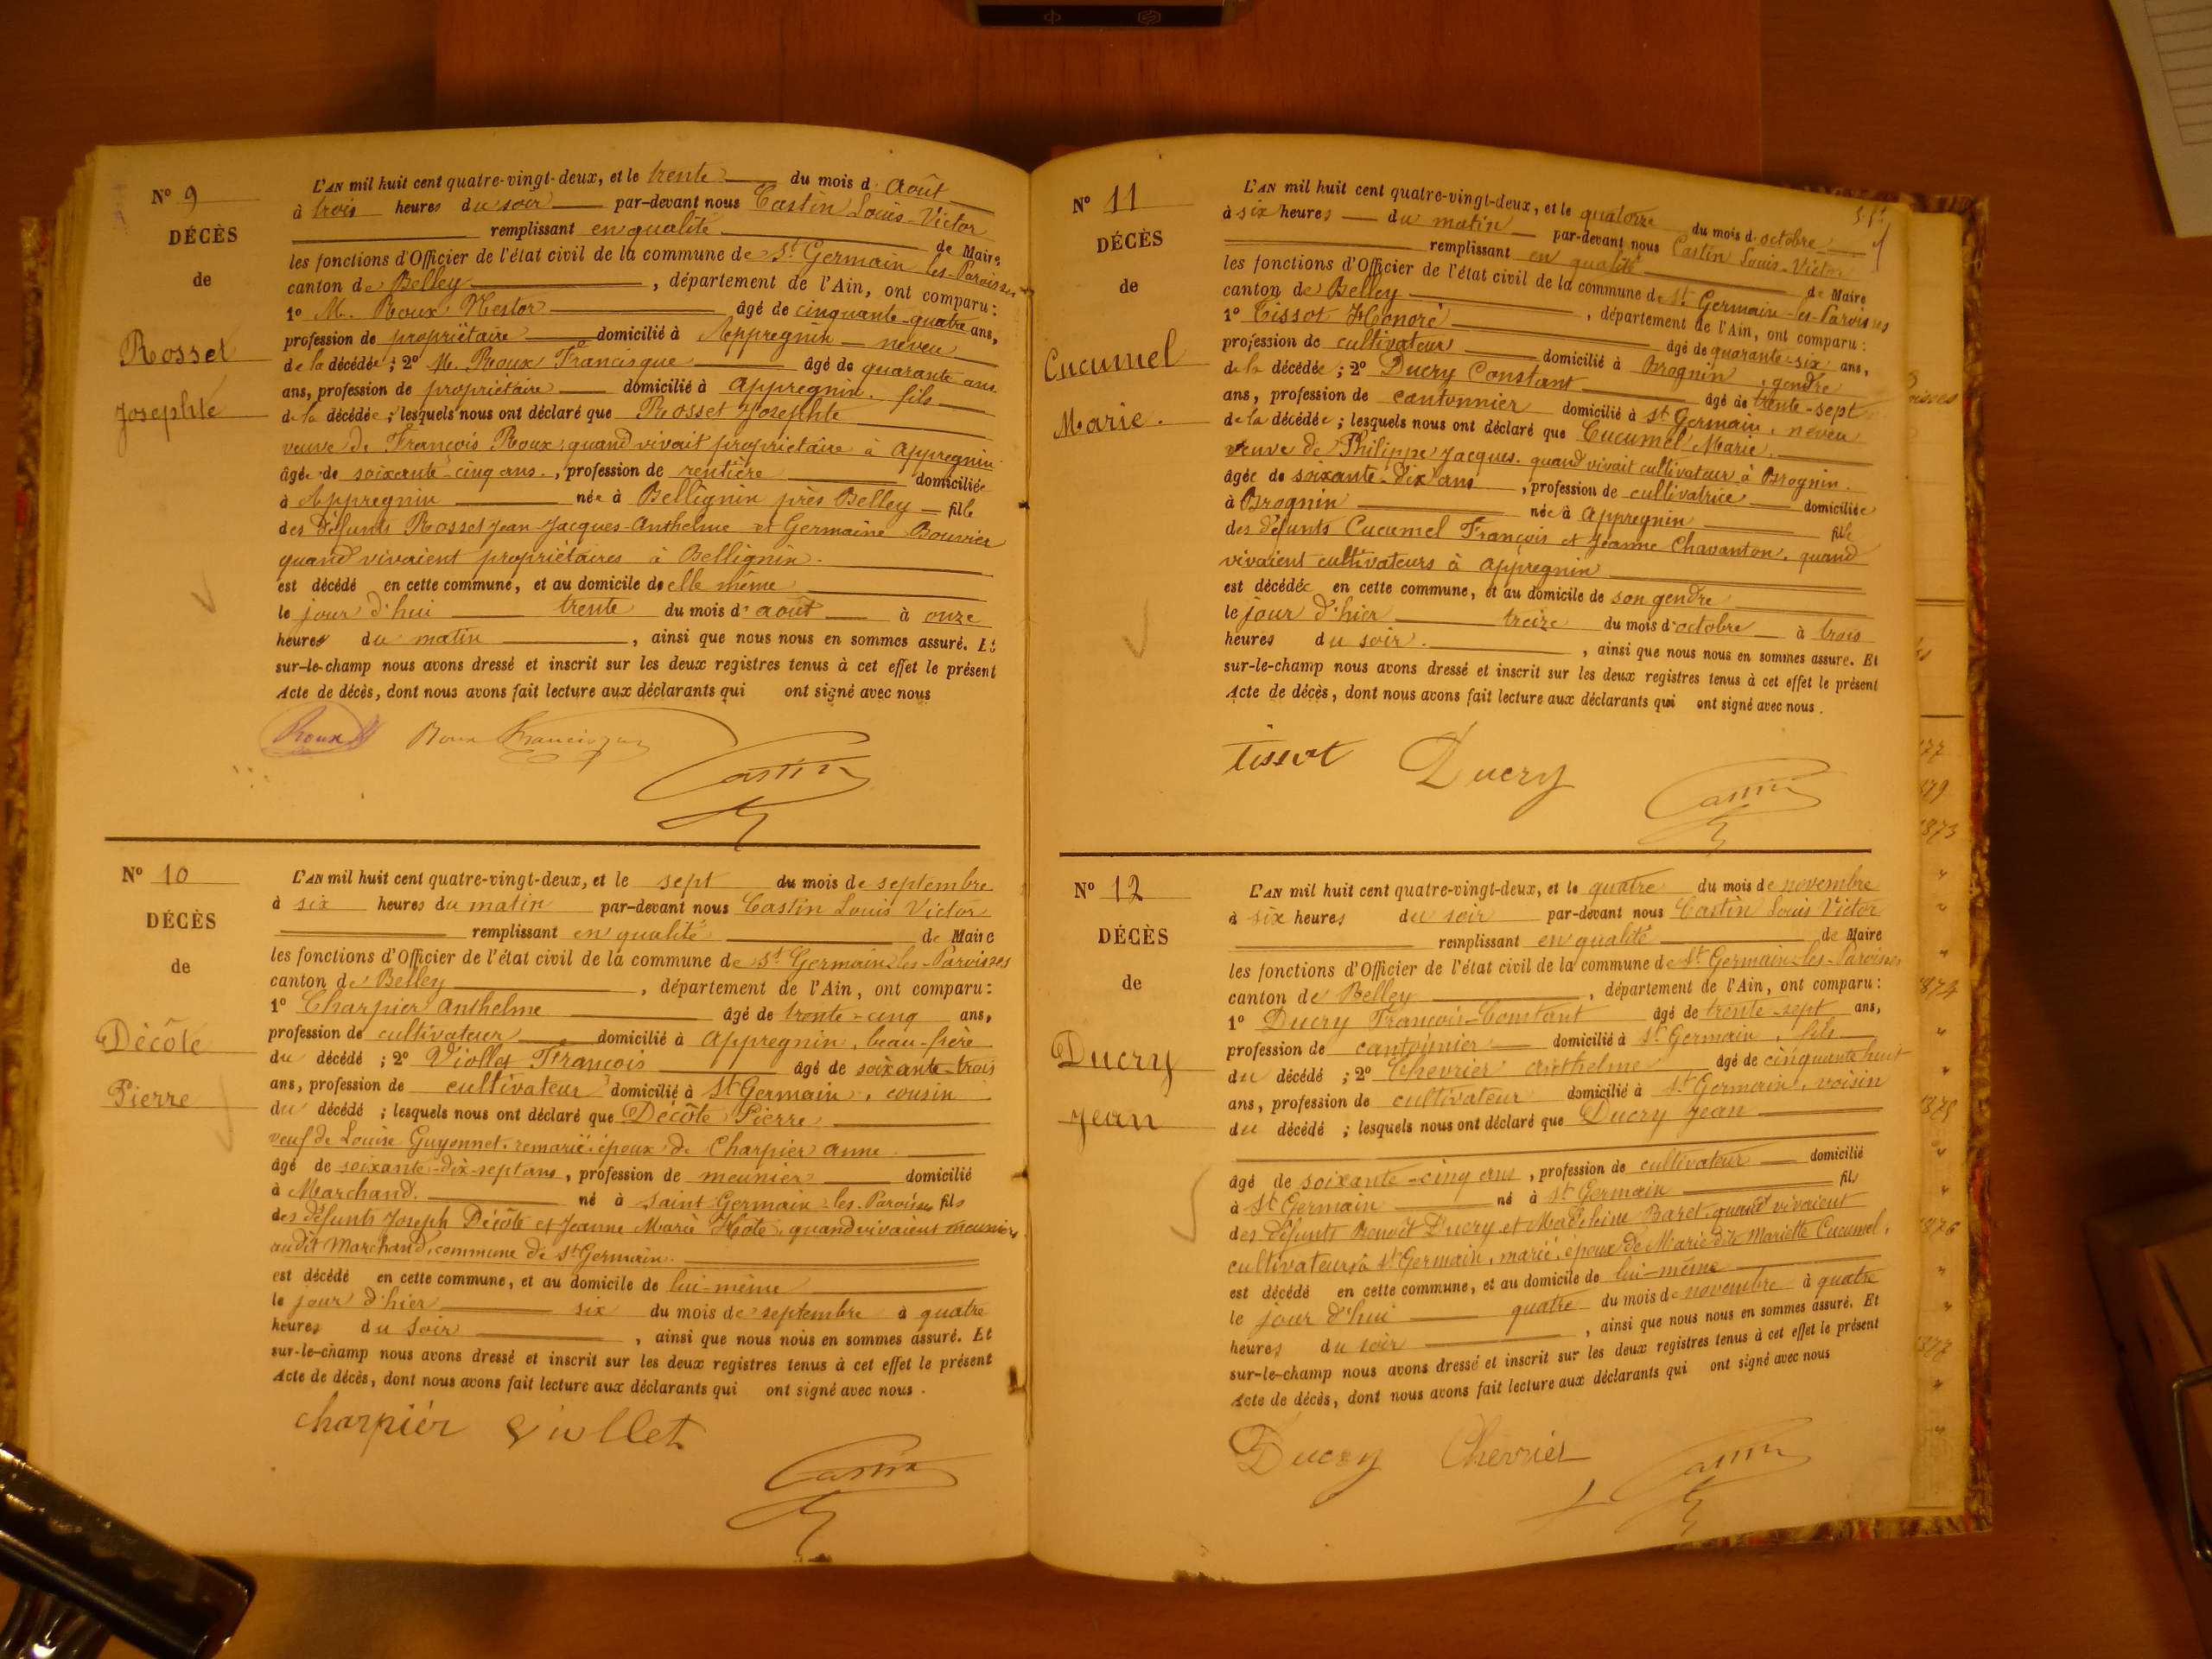 N° 9
DÉCÈS
de
Rosset
Josephte
L'AN mil huit cent quatre-vingt-deux, et le trente du mois d'Août
à trois heures du soir par-devant nous Castin Louis-Victor
remplissant en qualité de Maire
les fonctions d'Officier de l'état civil de la commune de St Germain-les-Paroisses
canton de Belley, département de l'Ain, ont comparu:
1° M. Roux Nestor âgé de cinquante-quatre ans,
profession de propriétaire domicilié à Appregnin neveu
de la décédée; 2° M. Roux Francisque âgé de quarante ans
ans, profession de propriétaire domicilié à Appregnin. fils
de la décédée; lesquels nous ont déclaré que Rosset Josephte
veuve de François Roux, quand vivait propriétaire à Appregnin
âgée de soixante-cinq ans, profession de rentière domiciliée
à Appregnin née à Bellignin près Belley fille
des défunts Rosset Jean-Jacques-Anthelme et Germaine Bouvier
quand vivaient propriétaires à Bellignin.
est décédé en cette commune, et au domicile de elle même
le jour d'hui trente du mois d'août à onze
heures du matin, ainsi que nous nous en sommes assuré. Et
sur-le-champ nous avons dressé et inscrit sur les deux registres tenus à cet effet le présent
Acte de décès, dont nous avons fait lecture aux déclarants qui ont signé avec nous
Roux Roux Francisque
Castin
N° 10
DÉCÈS
de
Décôte
Pierre
L'AN mil huit cent quatre-vingt-deux, et le sept du mois de septembre
à six heures du matin par-devant nous Castin Louis Victor
remplissant en qualité de Maire
les fonctions d'Officier de l'état civil de la commune de St Germain-les-Paroisses
canton de Belley, département de l'Ain, ont comparu:
1° Charpier Anthelme âgé de trente-cinq ans,
profession de cultivateur domicilié à Appregnin, beau-frère
du décédé; 2° Viollet François âgé de soixante-trois
ans, profession de cultivateur domicilié à St Germain, cousin
du décédé; lesquels nous ont déclaré que Décôte Pierre
veuf de Louise Guyonnet, remarié, époux de Charpier Anne
âgé de soixante-dix-sept ans, profession de meunier domicilié
à Marchand. né à Saint Germain-les-Paroisses fils
des défunts Joseph Décôte et Jeanne Marie Hote, quand vivaient meuniers
audit Marchand, commune de St Germain.
est décédé en cette commune, et au domicile de lui-même
le jour d'hier six du mois de septembre à quatre
heures du soir, ainsi que nous nous en sommes assuré. Et
sur-le-champ nous avons dressé et inscrit sur les deux registres tenus à cet effet le présent
Acte de décès, dont nous avons fait lecture aux déclarants qui ont signé avec nous.
Charpier Viollet
Castin
N° 11
DÉCÈS
de
Cucumel
Marie.
L'AN mil huit cent quatre-vingt-deux, et le quatorze du mois d'octobre
à six heures du matin par-devant nous Castin Louis-Victor
remplissant en qualité de Maire
les fonctions d'Officier de l'état civil de la commune de St Germain-les-Paroisses
canton de Belley, département de l'Ain, ont comparu:
1° Tissot Honoré âgé de quarante-six ans,
profession de cultivateur domicilié à Brognin, gendre
de la décédée; 2° Ducry Constant âgé de trente-sept
ans, profession de cantonnier domicilié à St Germain, neveu
de la décédée; lesquels nous ont déclaré que Cucumel Marie.
veuve de Philippe Jacques. quand vivait cultivateur à Brognin.
âgée de soixante-dix ans, profession de cultivatrice domiciliée
à Brognin née à Appregnin fille
des défunts Cucumel François et Jeanne Chavanton, quand
vivaient cultivateurs à Appregnin
est décédée en cette commune, et au domicile de son gendre
le jour d'hier treize du mois d'octobre à trois
heures du soir., ainsi que nous nous en sommes assuré. Et
sur-le-champ nous avons dressé et inscrit sur les deux registres tenus à cet effet le présent
Acte de décès, dont nous avons fait lecture aux déclarants qui ont signé avec nous.
Tissot Ducry
Castin
N° 12
DÉCÈS
de
Ducry
Jean
L'AN mil huit cent quatre-vingt-deux, et le quatre du mois de novembre
à six heures du soir par-devant nous Castin Louis Victor
remplissant en qualité de Maire
les fonctions d'Officier de l'état civil de la commune de St Germain-les-Paroisses
canton de Belley, département de l'Ain, ont comparu:
1° Ducry François-Constant âgé de trente-sept ans,
profession de cantonnier domicilié à St Germain, fils
du décédé; 2° Chevrier Anthelme âgé de cinquante huit
ans, profession de cultivateur domicilié à St Germain, voisin
du décédé; lesquels nous ont déclaré que Ducry Jean
âgé de soixante-cinq ans, profession de cultivateur domicilié
à St Germain né à St Germain fils
des défunts Benoît Ducry et Madeleine Baret, quand vivaient
cultivateurs à St Germain, marié, époux de Marie dite Mariette Cucumel,
est décédé en cette commune, et au domicile de lui-même
le jour d'hui quatre du mois de novembre à quatre
heures du soir, ainsi que nous nous en sommes assuré. Et
sur-le-champ nous avons dressé et inscrit sur les deux registres tenus à cet effet le présent
Acte de décès, dont nous avons fait lecture aux déclarants qui ont signé avec nous
Ducry Chevrier
Castin